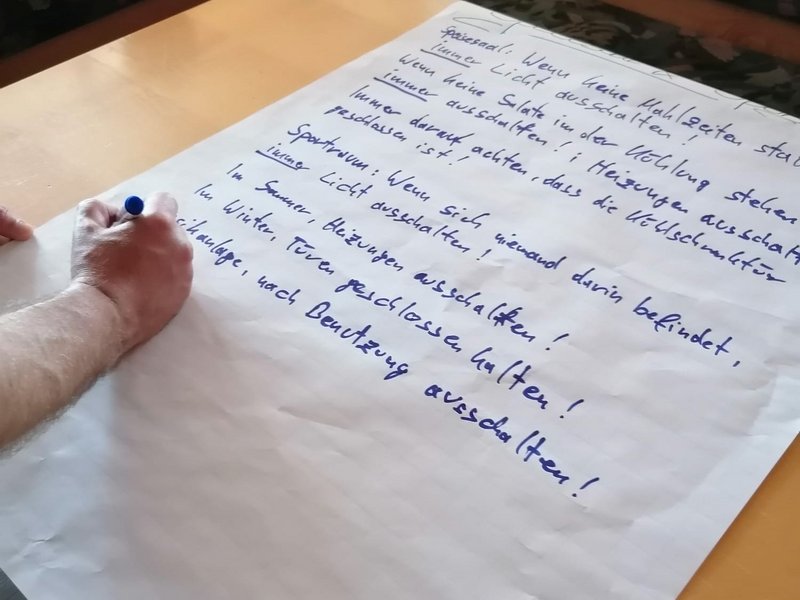 Speisesaal: Wenn keine Mahlzeiten
immer Licht ausschalten!
Wenn keine Salate in der Kühlung stehen
immer ausschalten! ; Heizungen
Immer darauf achten, dass die Kühlschranktür
geschlossen ist!
Sportraum: Wenn sich niemand darin befindet,
immer Licht ausschalten!
Im Sommer, Heizungen ausschalten!
Im Winter, Türen geschlossen halten!
nach Benutzung ausschalten!